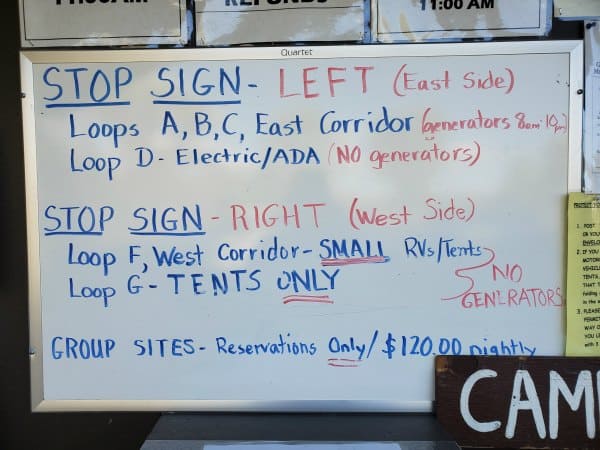 11:00 AM
Quartet
STOP SIGN - LEFT (East Side)
Loops A, B, C, East Corridor (generators 8am-10pm)
Loop D - Electric/ADA (NO generators)
STOP SIGN - RIGHT (West Side)
Loop F, West Corridor - SMALL RVs/Tents
Loop G - TENTS ONLY
NO
GENERATORS
GROUP SITES - Reservations Only/ $120.00 nightly
CAM